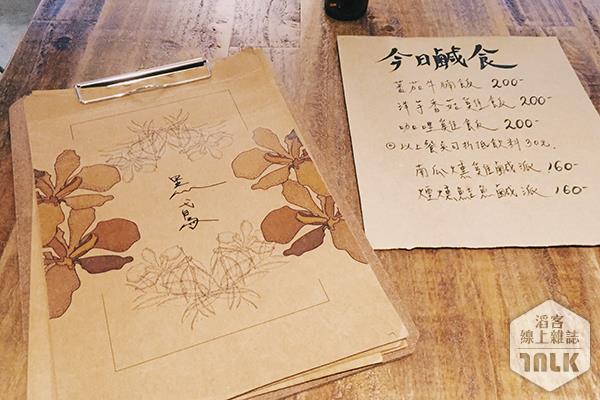 黑鳶
今日鹹食
蕃茄牛腩飯 200-
洋芋香菇雞飯 200-
咖哩雞飯 200-
◎以上餐采可折抵飲料30元.
南瓜燻雞鹹派 160-
煙燻鮭魚鹹派 160-
滔客
線上雜誌
TALK